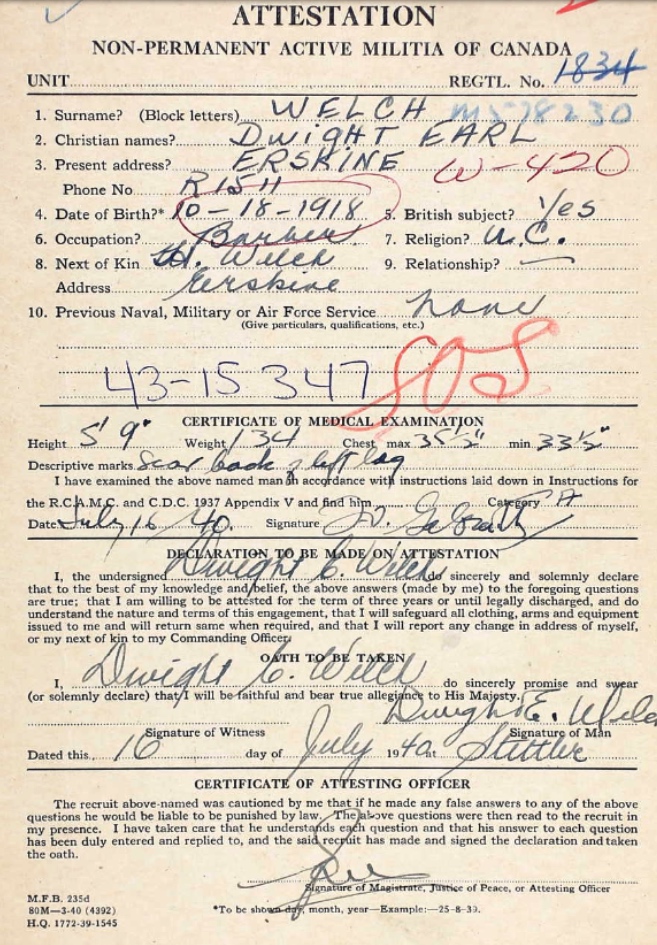 ATTESTATION
NON-PERMANENT ACTIVE MILITIA OF CANADA
UNIT REGTL. No. 1834
1. Surname? (Block letters) WELCH M578230
2. Christian names? DWIGHT EARL
3. Present address? ERSKINE W-420
Phone No R1511
4. Date of Birth?* 10-18-1918 5. British subject? Yes
6. Occupation? Barber 7. Religion? U.C.
8. Next of Kin H. Welch 9. Relationship?
Address Erskine
10. Previous Naval, Military or Air Force Service none
(Give particulars, qualifications, etc.)
43-15347 SOS
CERTIFICATE OF MEDICAL EXAMINATION
Height 5' 9" Weight 134 Chest max 35½" min 33½"
Descriptive marks Scar back of left leg
I have examined the above named man in accordance with instructions laid down in Instructions for
the R.C.A.M.C. and C.D.C. 1937 Appendix V and find him Category A
Date July 16/40. Signature
DECLARATION TO BE MADE ON ATTESTATION
I, the undersigned Dwight E. Welch do sincerely and solemnly declare
that to the best of my knowledge and belief, the above answers (made by me) to the foregoing questions
are true; that I am willing to be attested for the term of three years or until legally discharged, and do
understand the nature and terms of this engagement, that I will safeguard all clothing, arms and equipment
issued to me and will return same when required, and that I will report any change in address of myself,
or my next of kin to my Commanding Officer.
OATH TO BE TAKEN
I, Dwight E. Welch do sincerely promise and swear
(or solemnly declare) that I will be faithful and bear true allegiance to His Majesty.
Dwight E. Welch
Signature of Witness Signature of Man
Dated this 16 day of July 1940 at Stettler
CERTIFICATE OF ATTESTING OFFICER
The recruit above-named was cautioned by me that if he made any false answers to any of the above
questions he would be liable to be punished by law. The above questions were then read to the recruit in
my presence. I have taken care that he understands each question and that his answer to each question
has been duly entered and replied to, and the said recruit has made and signed the declaration and taken
the oath.
Signature of Magistrate, Justice of Peace, or Attesting Officer
M.F.B. 235d
80M—3-40 (4392)
H.Q. 1772-39-1545
*To be shown day, month, year—Example:—25-8-39.